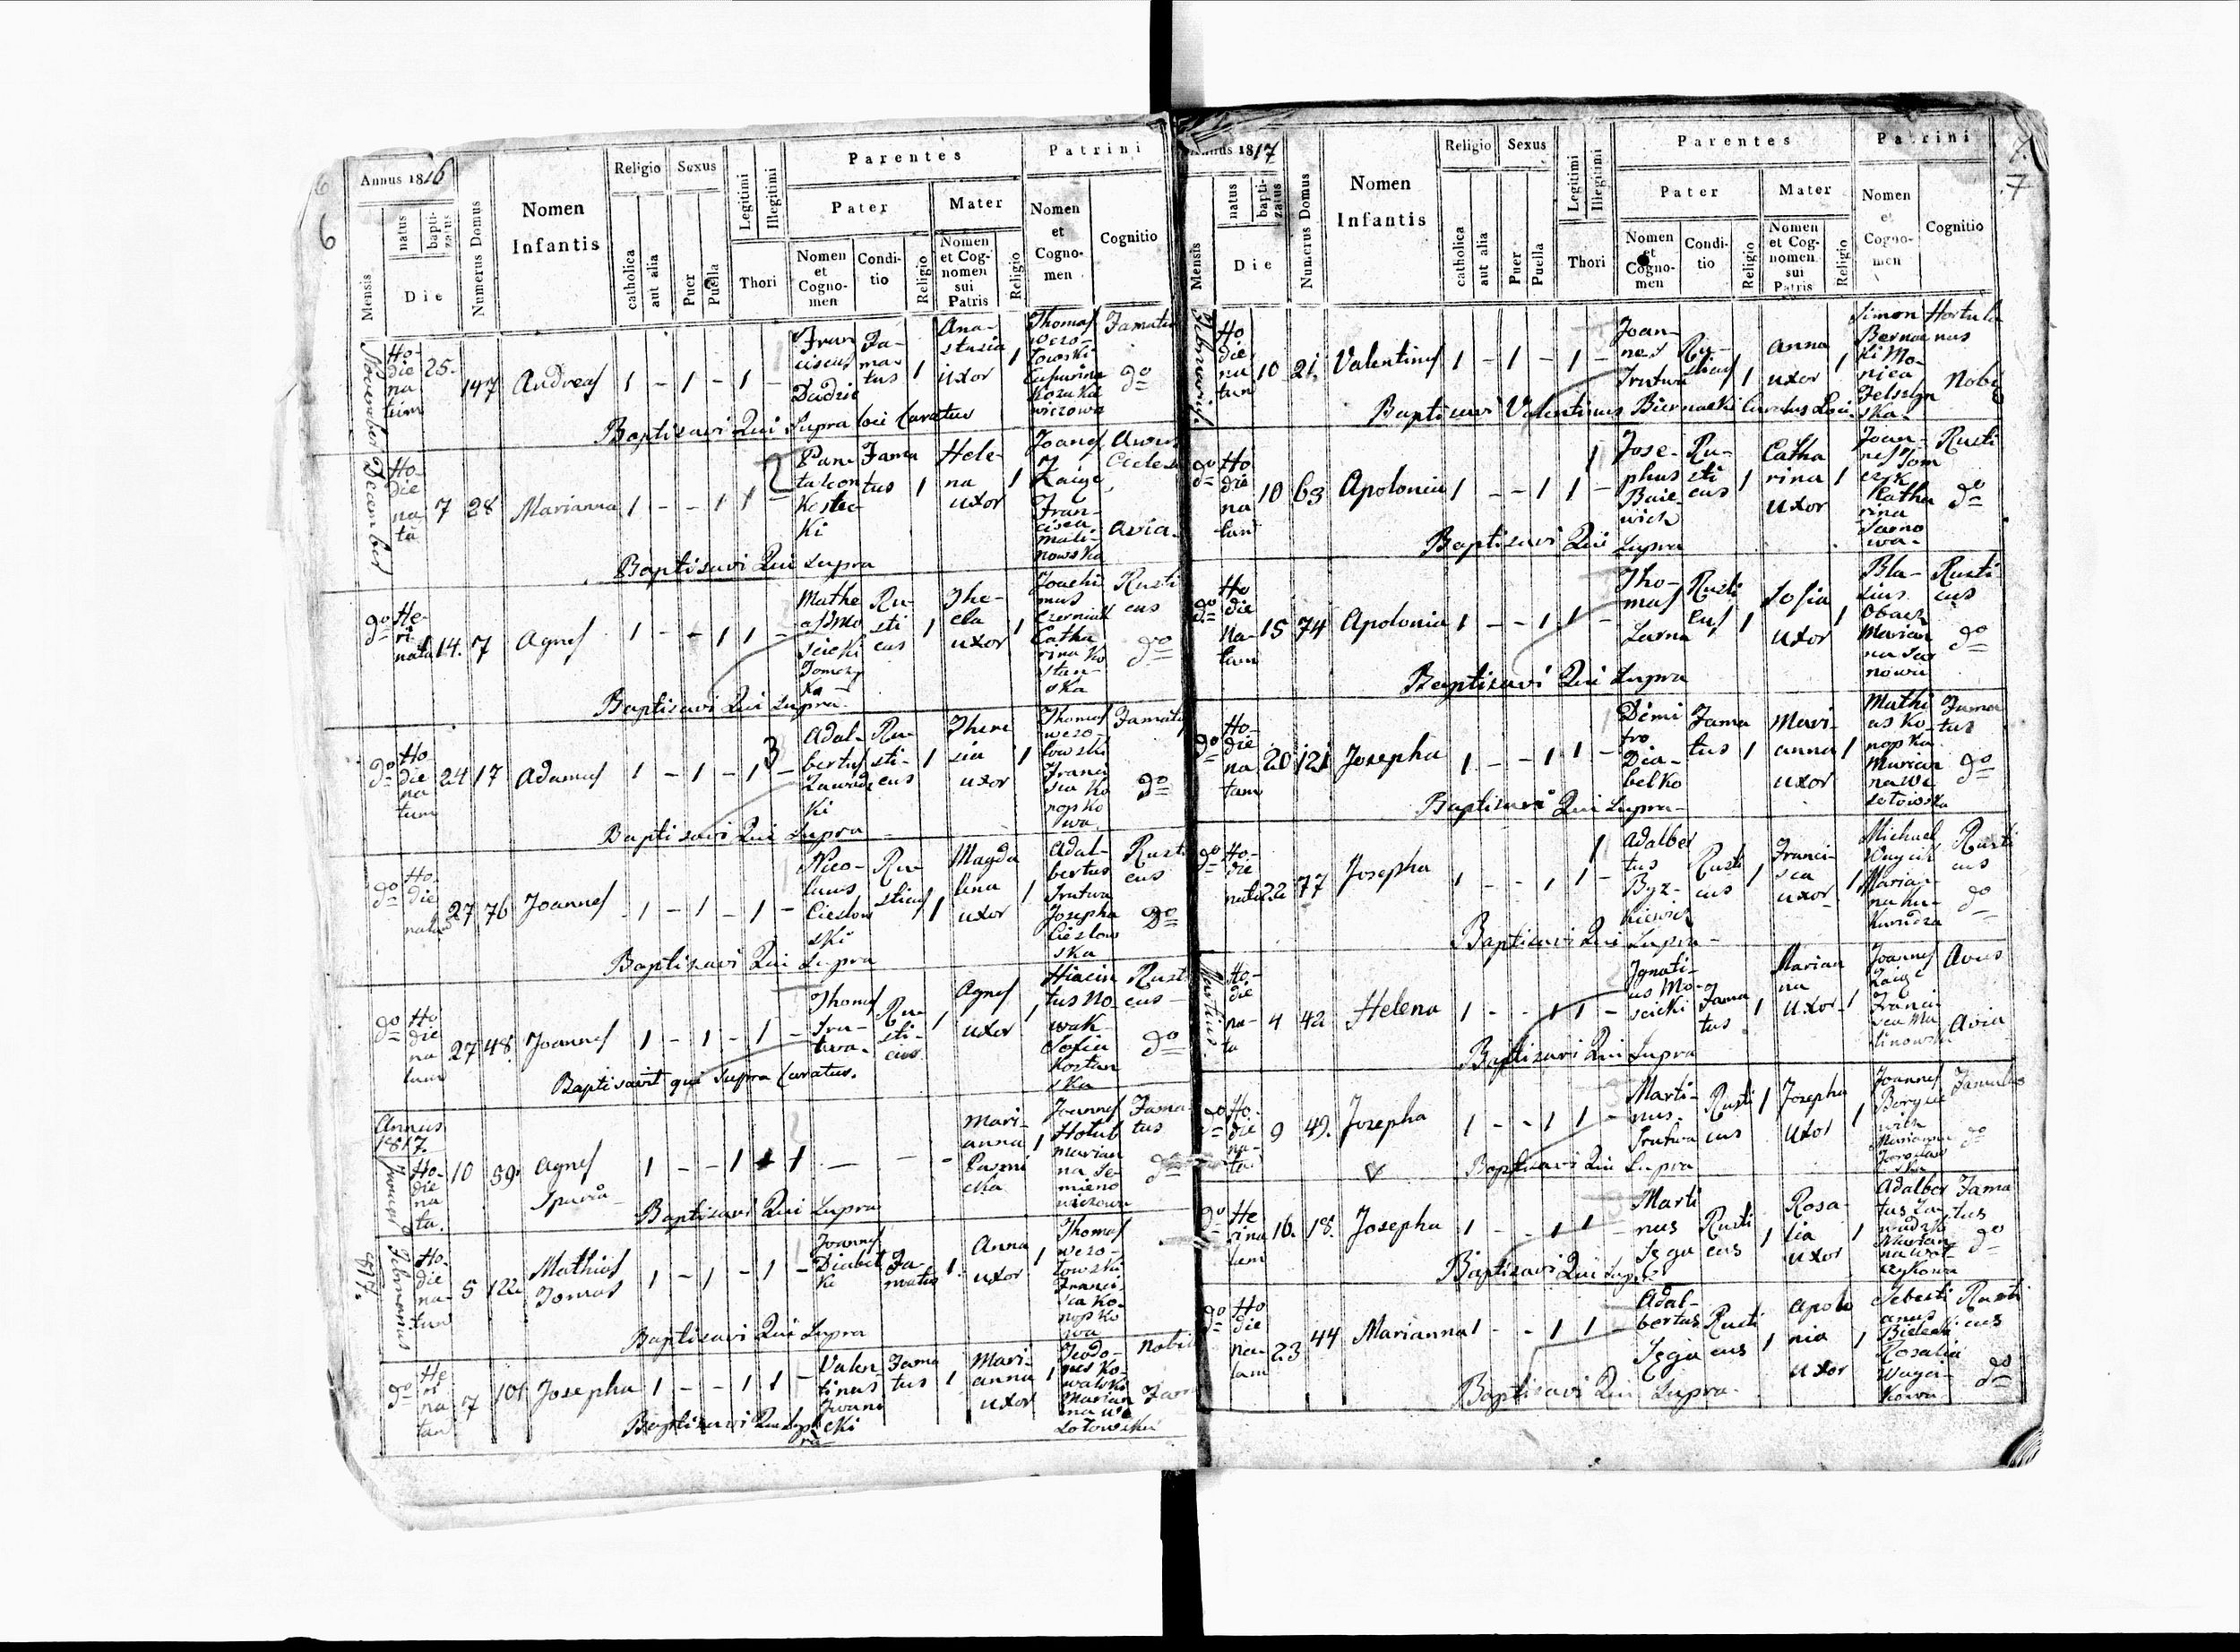 6
6
Annus 1816
Mensis
natus
bapti-
zatus
Die
Numerus Domus
Nomen
Infantis
Religio
catholica
aut alia
Sexus
Puer
Puella
Legitimi
Illegitimi
Thori
Parentes
Pater
Nomen
et
Cogno-
men
Condi-
tio
Religio
Mater
Nomen
et Cog-
nomen
sui
Patris
Religio
Patrini
Nomen
et
Cogno-
men
Cognitio
November
Ho
die
na
tum
25.
147
Andreas
1 - 1 - 1 -
Fran
ciscus
Dudzic
Fa-
ma-
tus
1
Ana-
stasia
uxor
1
Thomas
wezo-
lowski
Famatus
do
Baptisavi Qui Supra loci Curatus
December
Ho
die
na
ta
7
28
Marianna
1 - - 1 1
2
Pan-
taleon
Koste
ki
Fama
tus
1
Hele-
na
uxor
1
Joannes
Zaige
Fran-
cisca
mali-
nowska
Avus
avia.
Baptisavi Qui supra
do
He-
ri
nata
14.
7
Agnes
1 - - 1 1 -
Mathe
as Mo
scicki
Ru
sti
cus
1
The-
cla
uxor
1
Joachi
mus
Czerniak
Catha
rina Ko
stan-
ska
Rusti
cus
do
Baptisavi Qui supra
do
Ho
die
na
tum
24
17
Adamus
1 - 1 - 1 -
3
Adal-
bertus
Zawadz
ki
Ru-
sti-
cus
1
There
sia
uxor
1
Thomas
wezo-
lowski
Franci
sca Ko
nopko
wa
Famatus
do
Baptisavi Qui Supra
do
Ho
die
natus
27
76
Joannes
1 - 1 - 1 -
Nico-
laus
Cieslow
ski
Ru
sticus
1
Magda
lena
uxor
1
Adal-
bertus
Trutwa
Josepha
Cieslow
ska
Rusti
cus
Do
Baptisavi Qui Supra
do
Ho
die
na
tum
27
48.
Joannes
1 - 1 - 1 -
Thomas
Tru-
twa-
Ru-
sti-
cus
1
Agnes
uxor
1
Hiacin
tus No
wak-
Sofia
Kostan
ska
Rusti
cus
do
Baptisavit qui supra Curatus.
Annus
1817.
Ho-
die
na
ta.
10
39
Agnes
Spuria
1 - - 1
Mari-
anna
1
Joannes
Holub
Marian
na Se-
mieno
wiczowa
Fama
tus
do
Baptisavi Qui Supra
Februarius
1817.
Ho-
die
na-
tus
5
122
Mathias
Tomas
1 - 1 - 1 -
Joannes
Diabel
ko
Fa-
matus
1
Anna
uxor
1
Thomas
wezo-
lowski
Franci
sca Ko-
nopko
wa
Baptisavi Qui Supra
do
He
ri
na
tam
7
101
Josepha
1 - - 1 1 -
Valen
tinus
Iwani
cki
Fama
tus
1
Mari-
anna
uxor
Ko-
walski
Marian
na We
solowska
Nobilis
Fam
Baptisavi Qui Supra
7.
7
Annus 1817
Mensis
natus
bapti-
zatus
Die
Numerus Domus
Nomen
Infantis
Religio
catholica
aut alia
Sexus
Puer
Puella
Legitimi
Illegitimi
Thori
Parentes
Pater
Nomen
et
Cogno-
men
Condi-
tio
Religio
Mater
Nomen
et Cog-
nomen
sui
Patris
Religio
Patrini
Nomen
et
Cogno-
men
Cognitio
Februarius
Ho
die
na
tum
10
21.
Valentinus
1 - 1 - 1 -
Joan-
nes
Trutwa
Ru-
sticus
1
Anna
uxor
1
Simon
Bernac
ki Mo-
nica
Hortula
nus
Nobi
Baptisavi Valentinus Biernacki Curatus
do
Ho
die
na
tam
10
63
Apolonia
1 - - 1 1 -
Jose-
phus
Ru-
sti
cus
1
Catha
rina
uxor
1
Joan-
nes Tom
czyk
Katha
rina
Sarno
wa-
Rusti
do
Baptisavi Qui Supra
do
Ho
die
na-
tam
15
74
Apolonia
1 - - 1 1 -
Tho-
mas
Sarna
Rusti
cus
1
Sofia
uxor
1
Bla-
sius
Marian
na
Rusti
cus
do
Baptisavi Qui Supra
do
Ho-
die
na
tam
20
121
Josepha
1 - - 1 1 -
Demi
tro
Dia-
belko
Fama
tus
1
Mari-
anna
uxor
1
Mathi
as Ko-
nopka
Marian
na We
solowska
Fama
tus
do
Baptisavi Qui Supra-
do
Ho-
die
nata
22
77
Josepha
1 - - 1 1 -
Adalber
tus
Rusti
cus
1
Franci-
sca
uxor
1
Michael
Marian-
na Ku-
Rusti
cus
do
Baptisavi Qui Supra-
Martius.
Ho-
die
na-
ta
4
42
Helena
1 - - 1 1 -
Ignati-
us Mo-
scicki
Fama
tus
1
Marian
na
uxor
1
Joannes
Zaige
Franci-
sca Ma
linowska
Avus
Avia
Baptisavi Qui Supra
do
Ho-
die
na-
ta
9
49.
Josepha
1 - - 1 1 -
Marti-
nus
Trutwa
Rusti
cus
1
Josepha
uxor
1
Joannes
Marianna
Jaroslaw
ska
do
Baptisavi Qui Supra
do
He
rina
tam
16.
18.
Josepha
1 - - 1 1
Marti
nus
Rusti
cus
1
Rosa-
lia
uxor
1
Adalber
tus Za-
wadzki
Marian
na
Fama
tus
do
Baptisavi Qui Supra
do
Ho
die
na-
tam
23
44
Marianna
1 - - 1 1
Adal-
bertus
Rusti
cus
1
Apolo
nia
uxor
1
Sebasti
anus
Rosalia
Rusti
cus
do
Baptisavi Qui Supra.